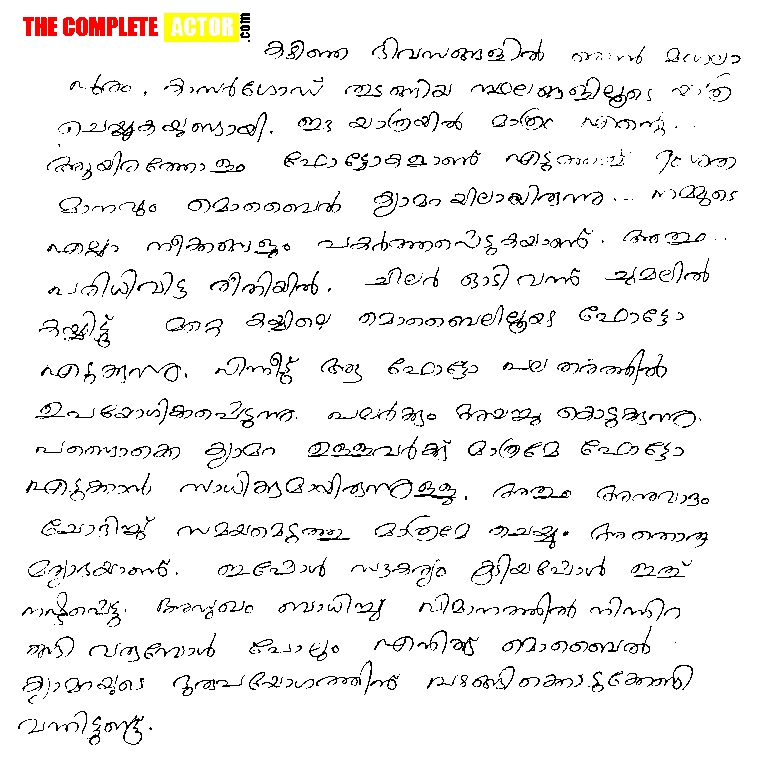 THE COMPLETE ACTOR .com
കഴിഞ്ഞ ദിവസങ്ങളിൽ ഞാൻ മലപ്പുറം
കാസർഗോഡ് തുടങ്ങിയ സ്ഥലങ്ങളിലൂടെ യാത്ര
ചെയ്യുകയുണ്ടായി. ഈ യാത്രയിൽ മാത്രം
ആയിരത്തോളം ഫോട്ടോകളാണ്
മാനവും മൊബൈൽ ക്യാമറയിലായിരുന്നു... നമ്മുടെ
എല്ലാ നീക്കങ്ങളും പകർത്തപ്പെടുകയാണ്. അതും..
പരിധിവിട്ട രീതിയിൽ. ചിലർ ഓടി വന്ന് ചുമലിൽ
കയ്യിട്ട് മറ്റേ കയ്യിലെ മൊബൈലിലൂടെ ഫോട്ടോ
എടുക്കുന്നു. പിന്നീട് ആ ഫോട്ടോ പല തരത്തിൽ
ഉപയോഗിക്കപ്പെടുന്നു. പലർക്കും അയച്ചു കൊടുക്കുന്നു.
പണ്ടൊക്കെ ക്യാമറ ഉള്ളവർക്ക് മാത്രമേ ഫോട്ടോ
എടുക്കാൻ സാധിക്കുമായിരുന്നുള്ളൂ. അതും അനുവാദം
ചോദിച്ച് സമയമെടുത്തു മാത്രമേ ചെയ്യൂ. അതൊരു
മര്യാദയാണ്. ഇപ്പോൾ സൗകര്യം കൂടിയപ്പോൾ ഇത്
നഷ്ടപ്പെട്ടു. അസുഖം ബാധിച്ച് വിമാനത്തിൽ നിന്നിറ
ങ്ങി വരുമ്പോൾ പോലും എനിക്ക് മൊബൈൽ
ക്യാമറയുടെ ദുരുപയോഗത്തിന് വഴങ്ങിക്കൊടുക്കേണ്ടി
വന്നിട്ടുണ്ട്.